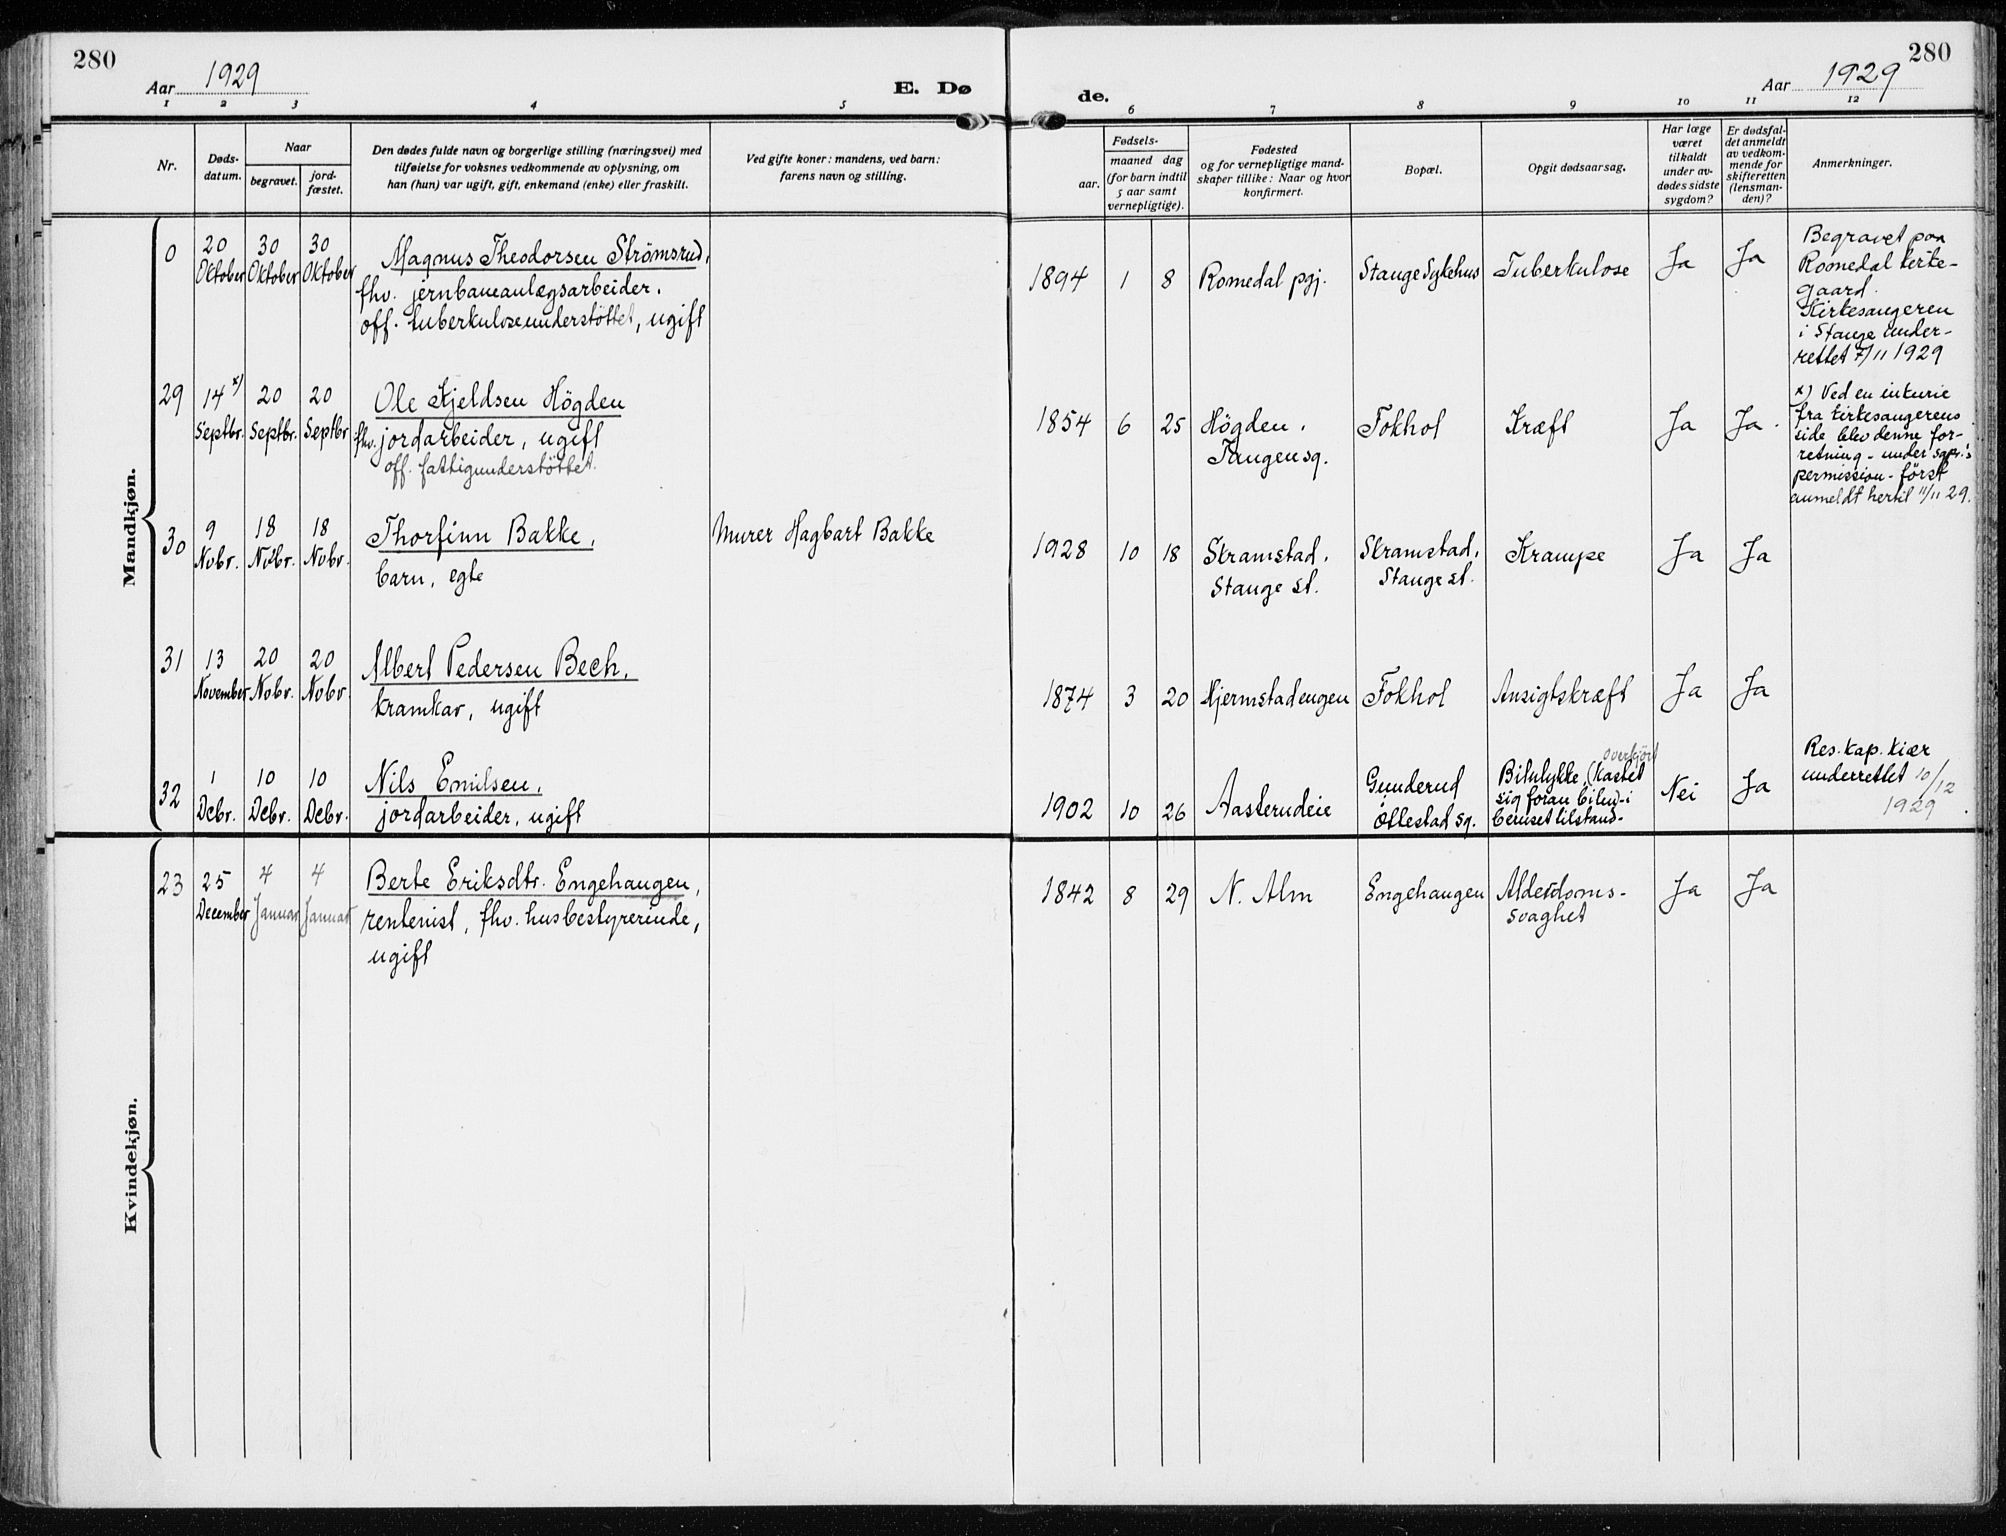 280
Aar 1929
E. Dø
de.
Aar 1929
280
1 2 3 4 5 6 7 8 9 10 11 12
Nr.
Døds-
datum.
Naar
begravet.
jord-
fæstet.
Den dødes fulde navn og borgerlige stilling (næringsvei) med
tilføielse for voksnes vedkommende av oplysning, om
han (hun) var ugift, gift, enkemand (enke) eller fraskilt.
Ved gifte koner: mandens, ved barn:
farens navn og stilling.
Fødsels-
aar.
maaned dag
(for barn indtil
5 aar samt
vernepligtige).
Fødested
og for vernepligtige mand-
skaper tillike: Naar og hvor
konfirmert.
Bopæl.
Opgit dødsaarsag.
Har læge
været
tilkaldt
under av-
dødes sidste
sygdom?
Er dødsfal-
det anmeldt
av vedkom-
mende for
skifteretten
(lensman-
den)?
Anmerkninger.
Mandkjøn.
0
20
Oktober
30
Oktober
30
Oktober
Magnus Theodorsen Strömsrud,
fhv. jernbaneanlægsarbeider.
off. tuberkuloseunderstöttet, ugift
1894 1 8
Romedal pgj.
Stange Sykehus
Tuberkulose
Ja
Ja
Begravet paa
Romedal kirke-
gaard.
Kirkesangeren
i Stange under-
rettet 7/11 1929
29
14 x)
Septbr.
20
Septbr.
20
Septbr
Ole Kjeldsen Högden
fhv. jordarbeider, ugift
off. fattigunderstöttet.
1854 6 25
Högden,
Tangen sg.
Fokhol
Kræft
Ja
Ja.
x) Ved en inkurie
fra kirkesangerens
side blev denne for-
retning - under sgpr.'s
permission - først
anmeldt hertil 11/11 29.
30
9
Nobr.
18
Nobr.
18
Nobr.
Thorfinn Bakke,
barn, egte
Murer Hagbart Bakke
1928 10 18
Skramstad,
Stange st.
Skramstad,
Stange st.
Krampe
Ja
Ja
31
13
November
20
Nobr.
20
Nobr.
Albert Pedersen Bech,
kramkar, ugift
1874 3 20
Hjermstadengen
Fokhol
Ansigtskræft
Ja
Ja
32
1
Debr.
10
Debr.
10
Debr.
Nils Emilsen,
jordarbeider, ugift
1902 10 26
Aasterudeie
Gunderud
Ottestad sg.
overkjört
Bilulykke (Kastet
sig foran bilen) - i
beruset tilstand -
Nei
Ja
Res. kap. Kiær
underrettet 10/12
1929.
Kvindekjøn.
23
25
December
4
Januar
4
Januar
Berte Eriksdtr. Engehaugen,
rentenist, fhv. husbestyrerinde,
ugift
1842 8 29
N. Alm
Engehaugen
Alderdoms-
svaghet
Ja
Ja